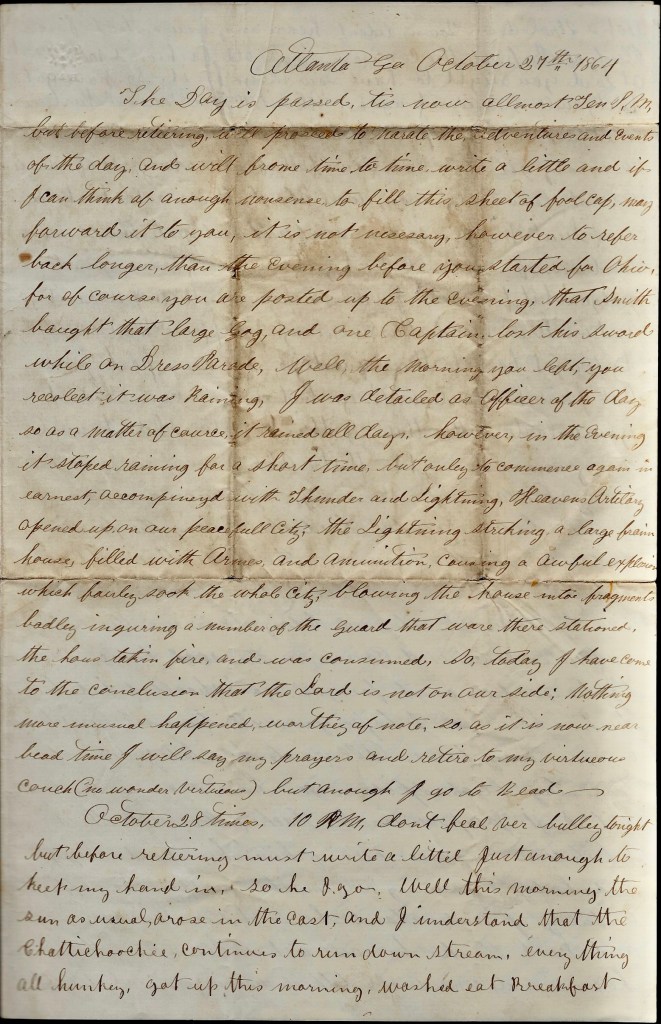 Atlanta Ga October 27th 1864
The Day is passed, tis now allmost Ten P.M.
but before retiering, will proceed to narate the adventures and Events
of the day, and will frome time to time, write a little and if
I can think of anough nonsense to fill this sheet of fool cap, may
forward it to you, it is not necesary, however to refer
back longer, than the Evening before you started for Ohio,
for of course you are posted up to the Evening, that Smith
baught that large Gog, and one Captain, lost his sword
while on Dress Parade, Well, the morning you left, you
recolect it was Raining, I was detailed as Officer of the day
so as a matter of cource, it rained all day, however, in the Evening
it stoped raining for a short time, but only to commence again in
earnest, accompineyd with Thunder and Lightning, Heavens Artilary
opened up on our peacefull City, the Lightning striking a large fraim
house, filled with Armes, and amunition, causing a awful explosion
which fairley sook the whole City, blowing the house into fragments
badley inguring a number of the guard that ware there stationed,
the hous takin fire, and was consumed, So, today I have come
to the conclusion that the Lord is not on our side; Nothing
more unusual happened, worthey of note, so, as it is now near
bead time I will say my prayers and retire to my virtueous
couch (no wonder virtuous) but anough I go to Bead
October 28 times, 10 P.M, dont feal ver bulley tonight
but before retiering must write a littel Just anough to
keep my hand in, so he I go, Well this morning the
sun as usual, arose in the East, and I understand that the
Chattichoochie, continues to run down stream, every thing
all hunkey, got up this morning, washed eat Breakfast